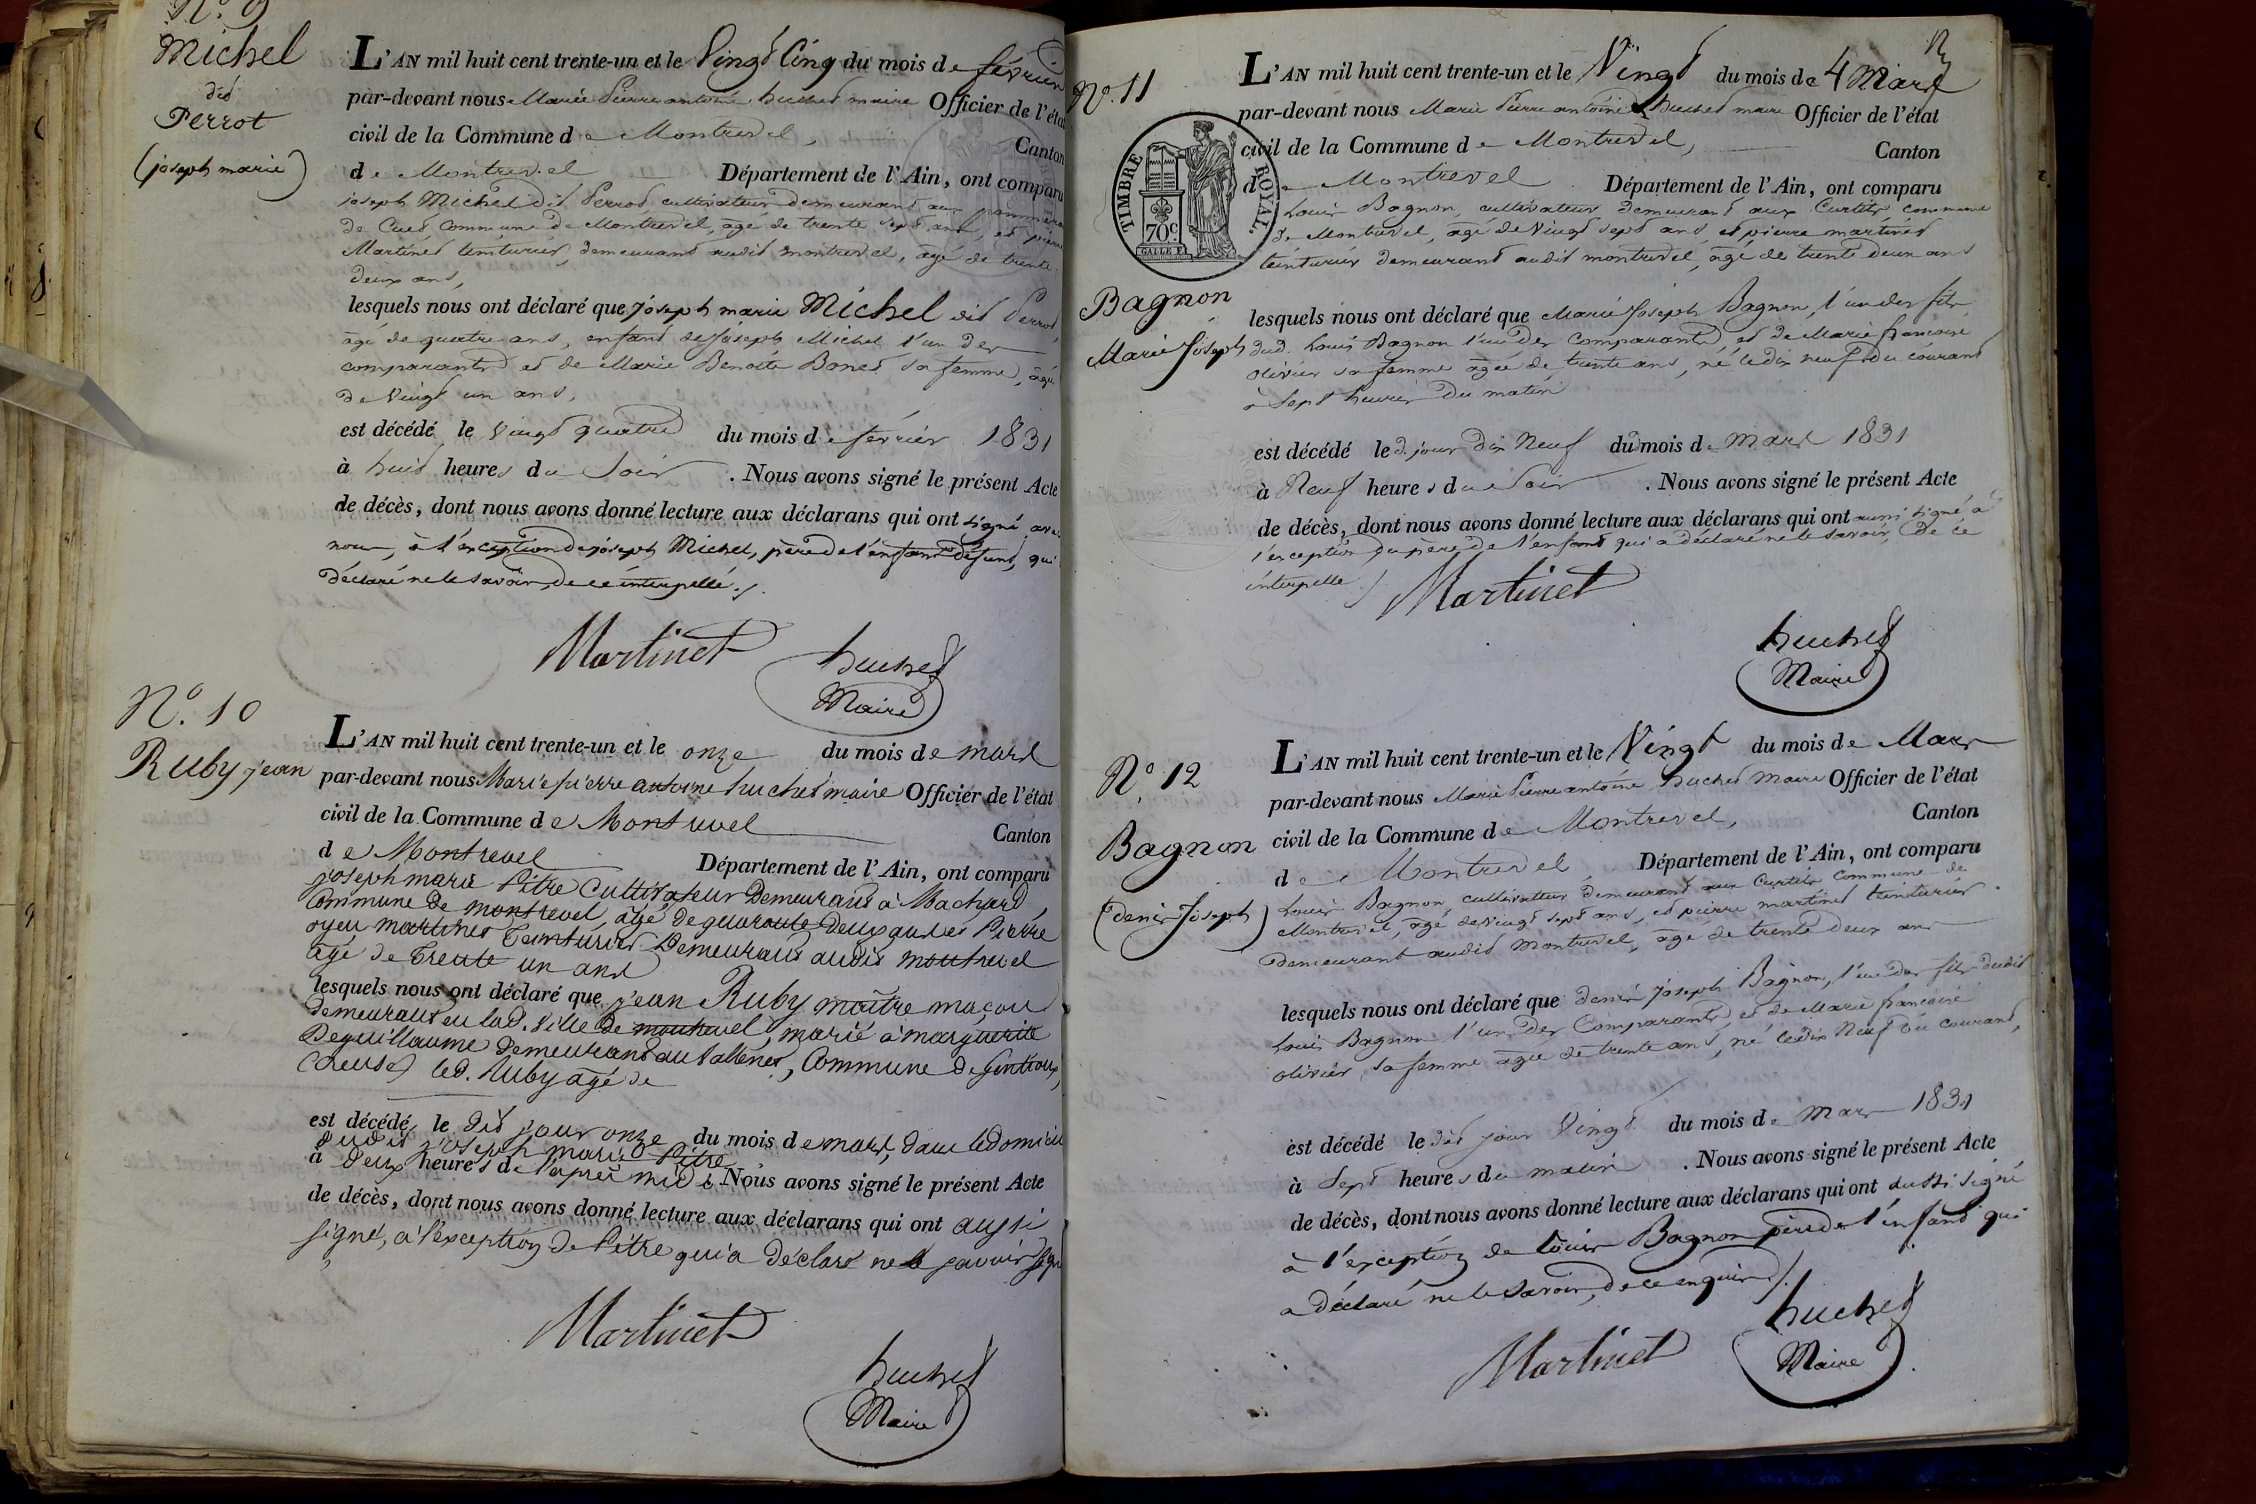 N.° 9
Michel
dit
Perrot
(joseph marie)
L'AN mil huit cent trente-un et le Vingt Cinq du mois de février
par-devant nous Marie Pierre antoine huchet maire Officier de l'état
civil de la Commune de Montrevel, Canton
de Montrevel Département de l'Ain, ont comparu
joseph Michel dit Perrot cultivateur demeurant aux
de Cuet Commune de Montrevel, agé de trente sept ans, et pierre
Martinet teinturier, demeurant audit montrevel, agé de trente
deux ans,
lesquels nous ont déclaré que joseph marie Michel dit Perrot,
agé de quatre ans, enfant de joseph Michel l'un des
comparants et de Marie Benoite Bonet sa femme, agée
de Vingt un ans,
est décédé le vingt quatre du mois de février 1831
à huit heures du Soir . Nous avons signé le présent Acte
de décès, dont nous avons donné lecture aux déclarans qui ont signé avec
nous, à l'exception de joseph Michel, père de l'enfant défunt, qui
déclaré ne le savoir, de ce interpellé ./.
Martinet
huchet
Maire
N.° 10
Ruby, jean
L'AN mil huit cent trente-un et le onze du mois de mars
par-devant nous Marie pierre antoine huchet maire Officier de l'état
civil de la Commune de Montrevel Canton
de Montrevel Département de l'Ain, ont comparu
joseph marie Pitre Cultivateur Demeurant à Machard
Commune de montrevel, agé de quarante Deux ans et Pierre
martinet Teinturier Demeurant audit montrevel
agé de Trente un ans
lesquels nous ont déclaré que jean Ruby maître maçon
demeurant en lad. Ville de montrevel, marié à marguerite
Deguillaume Demeurant au Commune de Gentioux,
(Creuse) led. Ruby agé de
est décédé, le dit jour onze du mois de mars, dans le domicile
dudit joseph marie Pitre
à Deux heures de l'après midi. Nous avons signé le présent Acte
de décès, dont nous avons donné lecture aux déclarans qui ont aussi
signé, à l'exception de Pitre qui a déclaré ne le savoir signer
Martinet
huchet
Maire
N.° 11
TIMBRE ROYAL.
70c
Bagnon
Marie Joseph
L'AN mil huit cent trente-un et le Vingt du mois de Mars
par-devant nous Marie Pierre antoine huchet maire Officier de l'état
civil de la Commune de Montrevel, Canton
de Montrevel Département de l'Ain, ont comparu
Louis Bagnon, cultivateur demeurant aux Curtils commune
de Montrevel, agé de Vingt sept ans et pierre martinet
teinturier demeurant audit montrevel, agé de trente deux ans
lesquels nous ont déclaré que Marie Joseph Bagnon, l'un des fils
dud. Louis Bagnon l'un des Comparants, et de Marie francoise
Olivier sa femme agée de trente ans, né le dix neuf du courant
à Sept heures du matin
est décédé led. jour dix Neuf du mois de Mars 1831
à Neuf heures du Soir . Nous avons signé le présent Acte
de décès, dont nous avons donné lecture aux déclarans qui ont aussi signé à
l'exception du père de l'enfant qui a déclaré ne le savoir, de ce
interpellé ./.
Martinet
huchet
Maire
N.° 12
Bagnon
(denis Joseph)
L'AN mil huit cent trente-un et le Vingt du mois de Mars
par-devant nous Marie Pierre antoine huchet Maire Officier de l'état
civil de la Commune de Montrevel, Canton
de Montrevel Département de l'Ain, ont comparu
Louis Bagnon, cultivateur demeurant aux Curtils commune de
Montrevel, agé de Vingt sept ans, et pierre martinet teinturier
demeurant audit Montrevel, agé de trente deux ans
lesquels nous ont déclaré que denis joseph Bagnon, l'un des fils dudit
Louis Bagnon l'un des Comparants, et de Marie francoise
olivier, sa femme agée de trente ans, né le dix Neuf du courant,
est décédé le dit jour Vingt du mois de Mars 1831
à Sept heures du matin . Nous avons signé le présent Acte
de décès, dont nous avons donné lecture aux déclarans qui ont aussi signé
à l'exception de Louis Bagnon père de l'enfant qui
a déclaré ne le savoir, de ce enquis ./.
Martinet
huchet
Maire